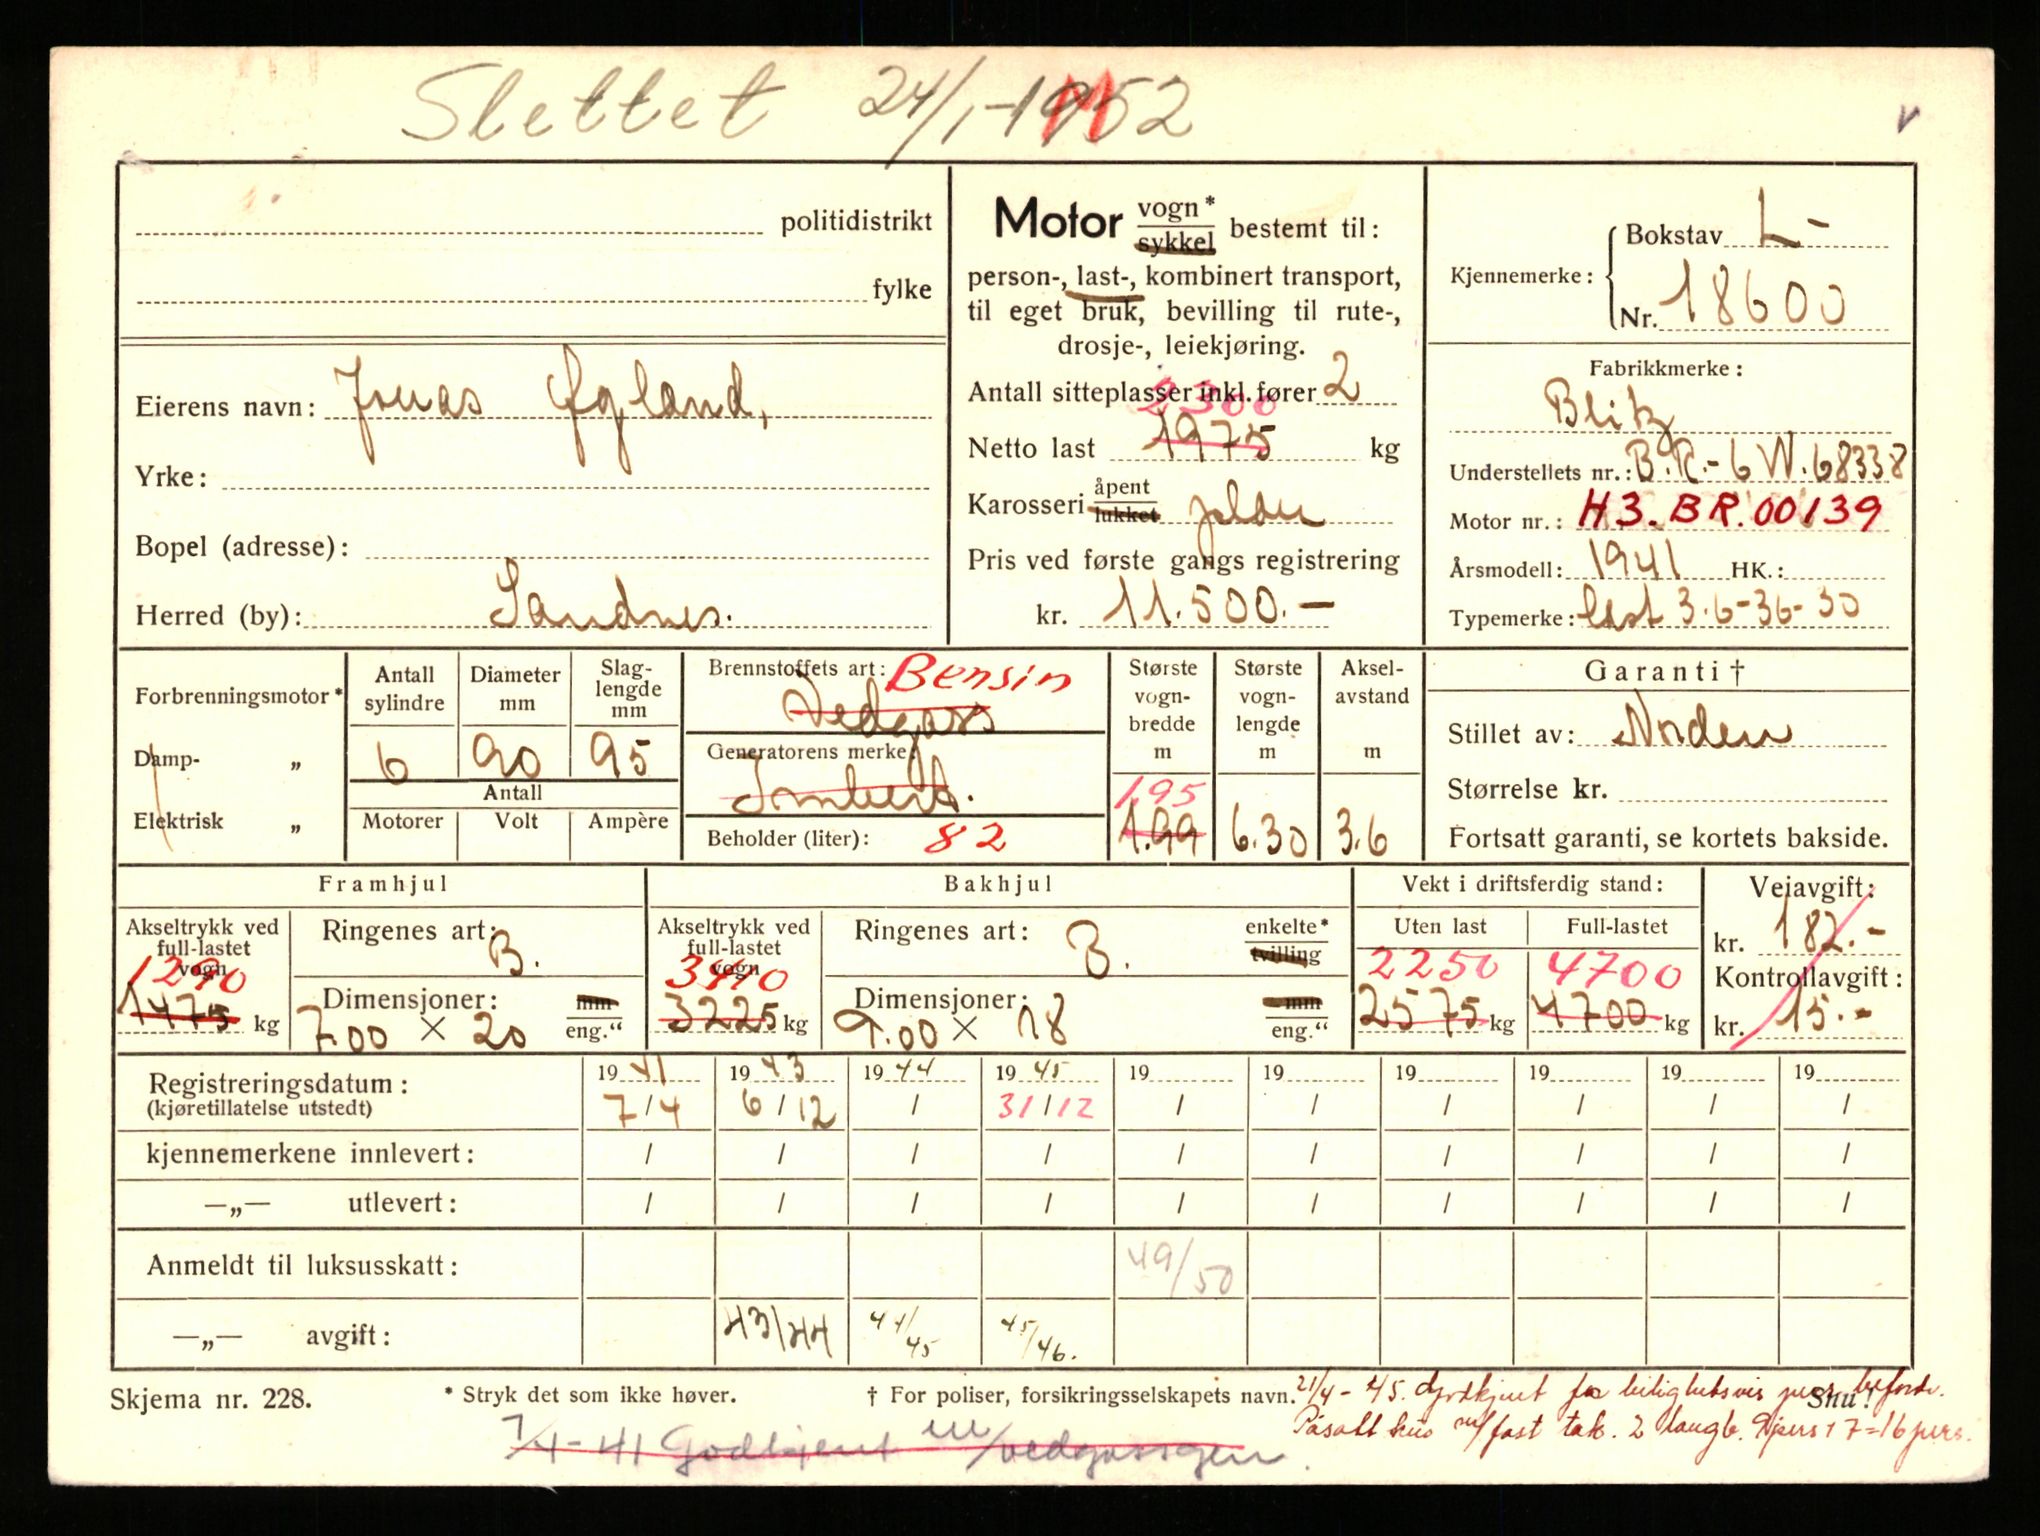 Slettet 24/1-1952
M
v
politidistrikt
fylke
Eierens navn: Jonas Øgland,
Yrke:
Bopel (adresse):
Herred (by): Sandnes.
Motor vogn* sykkel bestemt til:
person-, last-, kombinert transport,
til eget bruk, bevilling til rute-,
drosje-, leiekjøring.
Antall sitteplasser inkl. fører 2
2300
Netto last 1975 kg
Karosseri åpent lukket
Pris ved første gangs registrering
kr. 11.500.-
Kjennemerke: Bokstav L-
Nr. 18600
Fabrikkmerke:
Blitz
Understellets nr.: B.R.-6 W.68338
Motor nr.: H3.BR.00139
Årsmodell: 1941 HK.:
Typemerke: last 3.6-36-30
Forbrenningsmotor*
Damp- „
Elektrisk „
Antall sylindre 6
Diameter mm 90
Slag-lengde mm 95
Antall
Motorer Volt Ampère
Brennstoffets art: Bensin
Vedgass
Generatorens merke:
Imbert.
Beholder (liter): 82
Største vogn-bredde m
195
1.99
Største vogn-lengde m
6.30
Aksel-avstand m
3.6
Garanti †
Stillet av: Norden
Størrelse kr.
Fortsatt garanti, se kortets bakside.
Framhjul
Akseltrykk ved full-lastet vogn
1290
1475 kg
Ringenes art: B.
Dimensjoner: mm
7.00 × 20 eng.“
Bakhjul
Akseltrykk ved full-lastet vogn
3410
3225 kg
Ringenes art: B. enkelte* tvilling
Dimensjoner: mm
9.00 × 18 eng.“
Vekt i driftsferdig stand:
Uten last Full-lastet
2250 4700
2575 kg 4700 kg
Veiavgift:
kr. 182.-
Kontrollavgift:
kr. 15.-
Registreringsdatum: 19 41 19 43 19 44 19 45 19 19 19 19 19 19
(kjøretillatelse utstedt) 7/4 6/12 / 31/12 / / / / / /
kjennemerkene innlevert: / / / / / / / / / /
—„— utlevert: / / / / / / / / / /
Anmeldt til luksusskatt: 49/50
—„— avgift: 43/44 44/45 45/46.
Skjema nr. 228. * Stryk det som ikke høver. † For poliser, forsikringsselskapets navn. Snu!
21/4-45. Godkjent for leilighetsvis pers. beford.
Påsatt hus m/fast tak. 2 langb. 9 pers + 7 = 16 pers.
7/4-41 Godkjent m/vedgassgen.